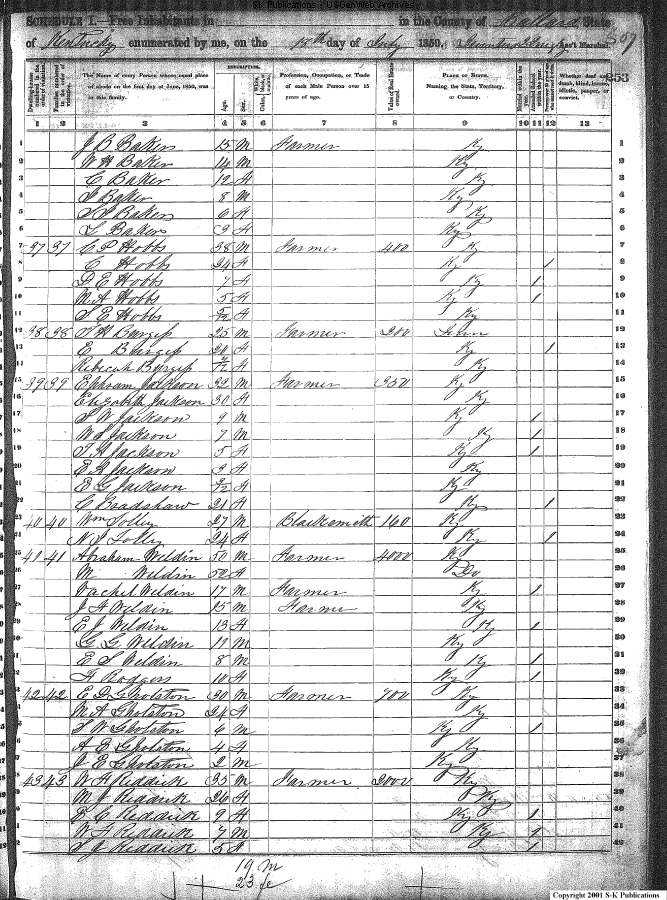 S-K Publications / USGenWeb Archives
SCHEDULE I.—Free Inhabitants in in the County of Ballard State
of Kentucky enumerated by me, on the 18th day of July 1850. Ass't Marshal. 507
253
DESCRIPTION.
Dwelling-houses numbered in the order of visitation. Families numbered in the order of visitation. The Name of every Person whose usual place of abode on the first day of June, 1850, was in this family. Age. Sex. Color, White, black, or mulatto. Profession, Occupation, or Trade of each Male Person over 15 years of age. Value of Real Estate owned. PLACE OF BIRTH. Naming the State, Territory, or Country. Married within the year. Attended School within the year. Persons over 20 y'rs of age who cannot read & write. Whether deaf and dumb, blind, insane, idiotic, pauper, or convict.
1 2 3 4 5 6 7 8 9 10 11 12 13
1 J B Baker 15 M Farmer Ky 1
2 W H Baker 14 M Ky 2
3 C Baker 12 f Ky 3
4 S Baker 8 M Ky 4
5 Baker 6 f Ky 5
6 L Baker 3 f Ky 6
7 37 37 C P Hobbs 38 M Farmer 400 Ky 7
8 C Hobbs 24 f Ky 1 8
9 D E Hobbs 7 f Ky 1 9
10 M A Hobbs 5 f Ky 1 10
11 S E Hobbs f Ky 11
12 38 38 F H Burgess 25 M Farmer 200 Tenn 12
13 E Burgess 20 f Ky 1 13
14 Rebecah Burgess f Ky 14
15 39 39 Ephraam Jackson 32 M Farmer 350 Ky 15
16 Elizabeth Jackson 30 f Ky 16
17 S W Jackson 9 M Ky 1 17
18 W S Jackson 7 M Ky 1 18
19 Jackson 5 f Ky 1 19
20 Jackson 3 f Ky 20
21 E G Jackson f Ky 21
22 C Bradshaw 21 f Ky 1 22
23 40 40 Wm Solley 27 M Blacksmith 160 Ky 23
24 N J Solley 24 f Ky 1 24
25 41 41 Abraham Weldin 50 M Farmer 4000 Ky 25
26 M Weldin 52 f Do 26
27 Vachel Weldin 17 M Farmer Ky 1 27
28 J H Weldin 15 M Farmer Ky 28
29 E J Weldin 13 f Ky 1 29
30 G G Weldin 11 M Ky 30
31 E S Weldin 8 M Ky 1 31
32 F Rodgers 10 f Ky 1 32
33 42 42 E D Gholston 30 M Farmer 700 Ky 33
34 M A Gholston 24 f Ky 34
35 S W Gholston 6 M Ky 1 35
36 A E Gholston 4 f Ky 36
37 J E Gholston 2 M Ky 37
38 43 43 W H Reddick 35 M Farmer 2000 Ky 38
39 M J Reddick 26 f Ky 39
40 C Reddick 9 f Ky 1 40
41 W H Reddick 7 M Ky 1 41
42 S J Reddick 5 f 1 42
19 M
23 fe
Copyright 2001 S-K Publications